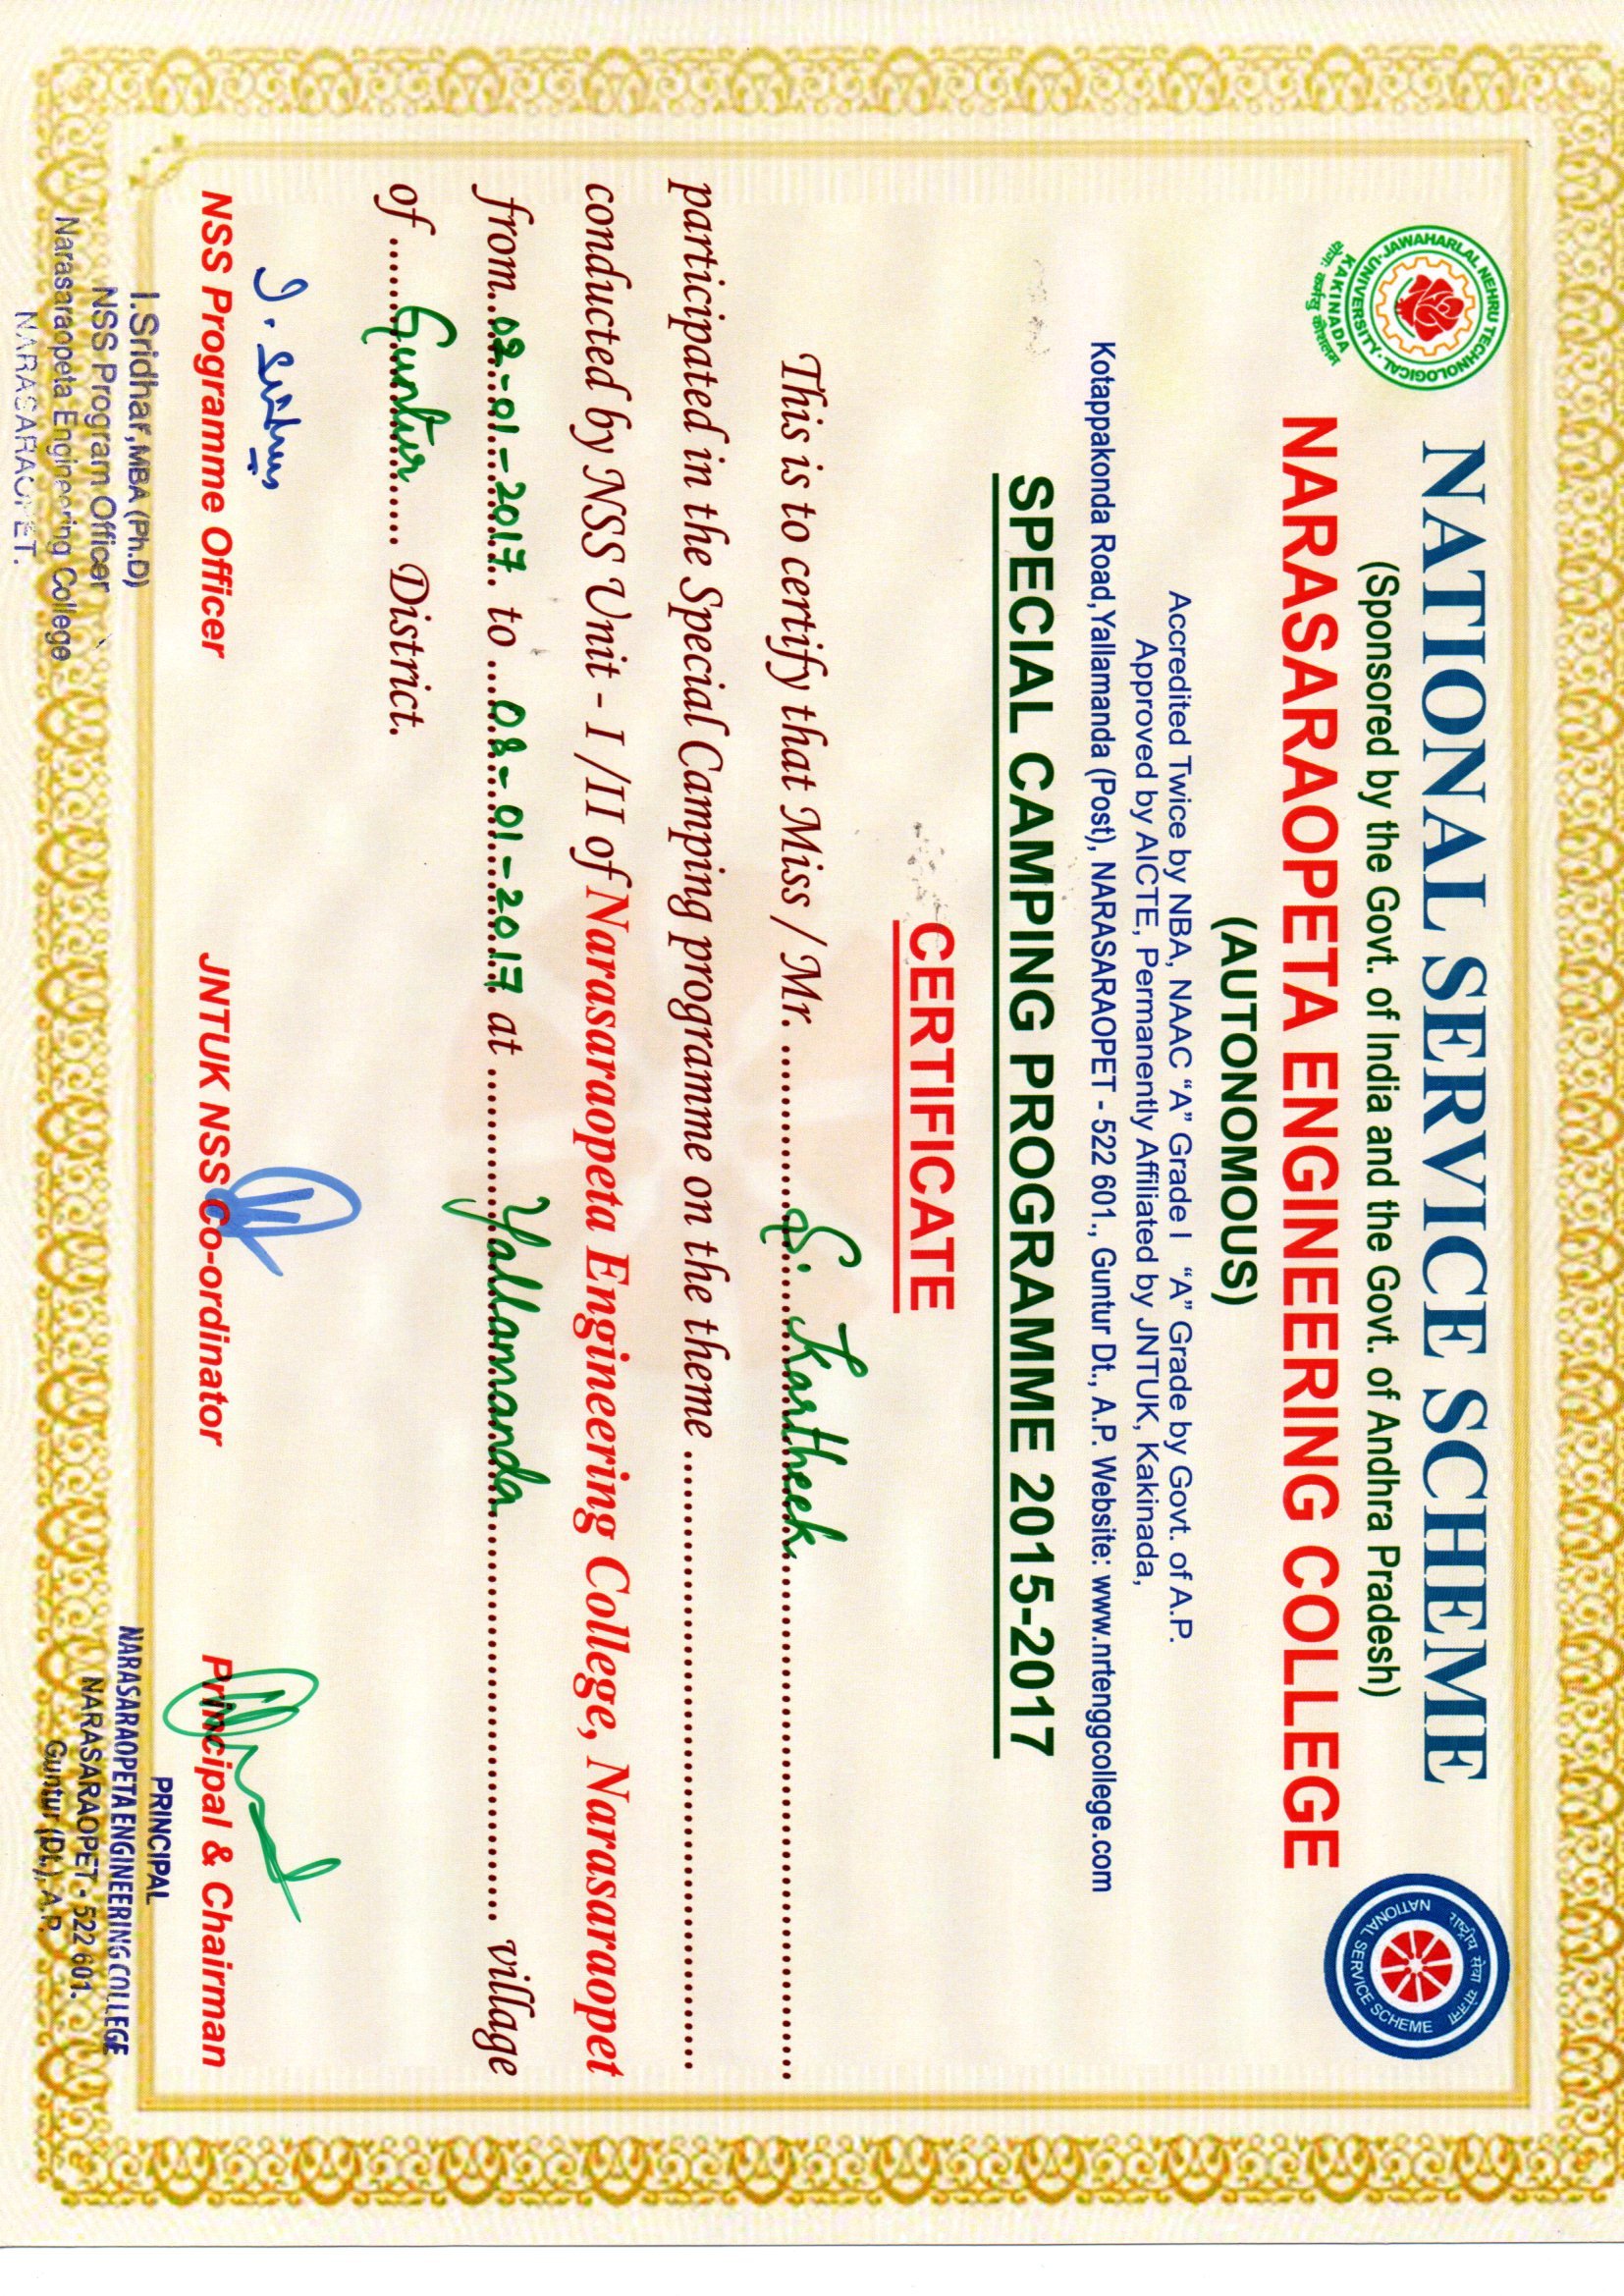 JAWAHARLAL NEHRU TECHNOLOGICAL
UNIVERSITY
KAKINADA
योगः कर्मसु कौशलम्
NATIONAL SERVICE SCHEME
(Sponsored by the Govt. of India and the Govt. of Andhra Pradesh)
राष्ट्रीय सेवा योजना
NATIONAL SERVICE SCHEME
NARASARAOPETA ENGINEERING COLLEGE
(AUTONOMOUS)
Accredited Twice by NBA, NAAC “A” Grade I “A” Grade by Govt. of A.P.
Approved by AICTE, Permanently Affiliated by JNTUK, Kakinada,
Kotappakonda Road,Yallamanda (Post), NARASARAOPET - 522 601., Guntur Dt., A.P. Website: www.nrtenggcollege.com
SPECIAL CAMPING PROGRAMME 2015-2017
CERTIFICATE
This is to certify that Miss / Mr. S. Kartheek
participated in the Special Camping programme on the theme
conducted by NSS Unit - I /II of Narasaraopeta Engineering College, Narasaraopet
from 02-01-2017 to 08-01-2017 at Yallamanda village
of Guntur District.
I. Sridhar
NSS Programme Officer
JNTUK NSS Co-ordinator
Principal & Chairman
I.Sridhar,MBA (Ph.D)
NSS Program Officer
Narasaraopeta Engineering College
NARASARAOPET.
PRINCIPAL
NARASARAOPETA ENGINEERING COLLEGE
NARASARAOPET - 522 601.
Guntur (Dt.), A.P.